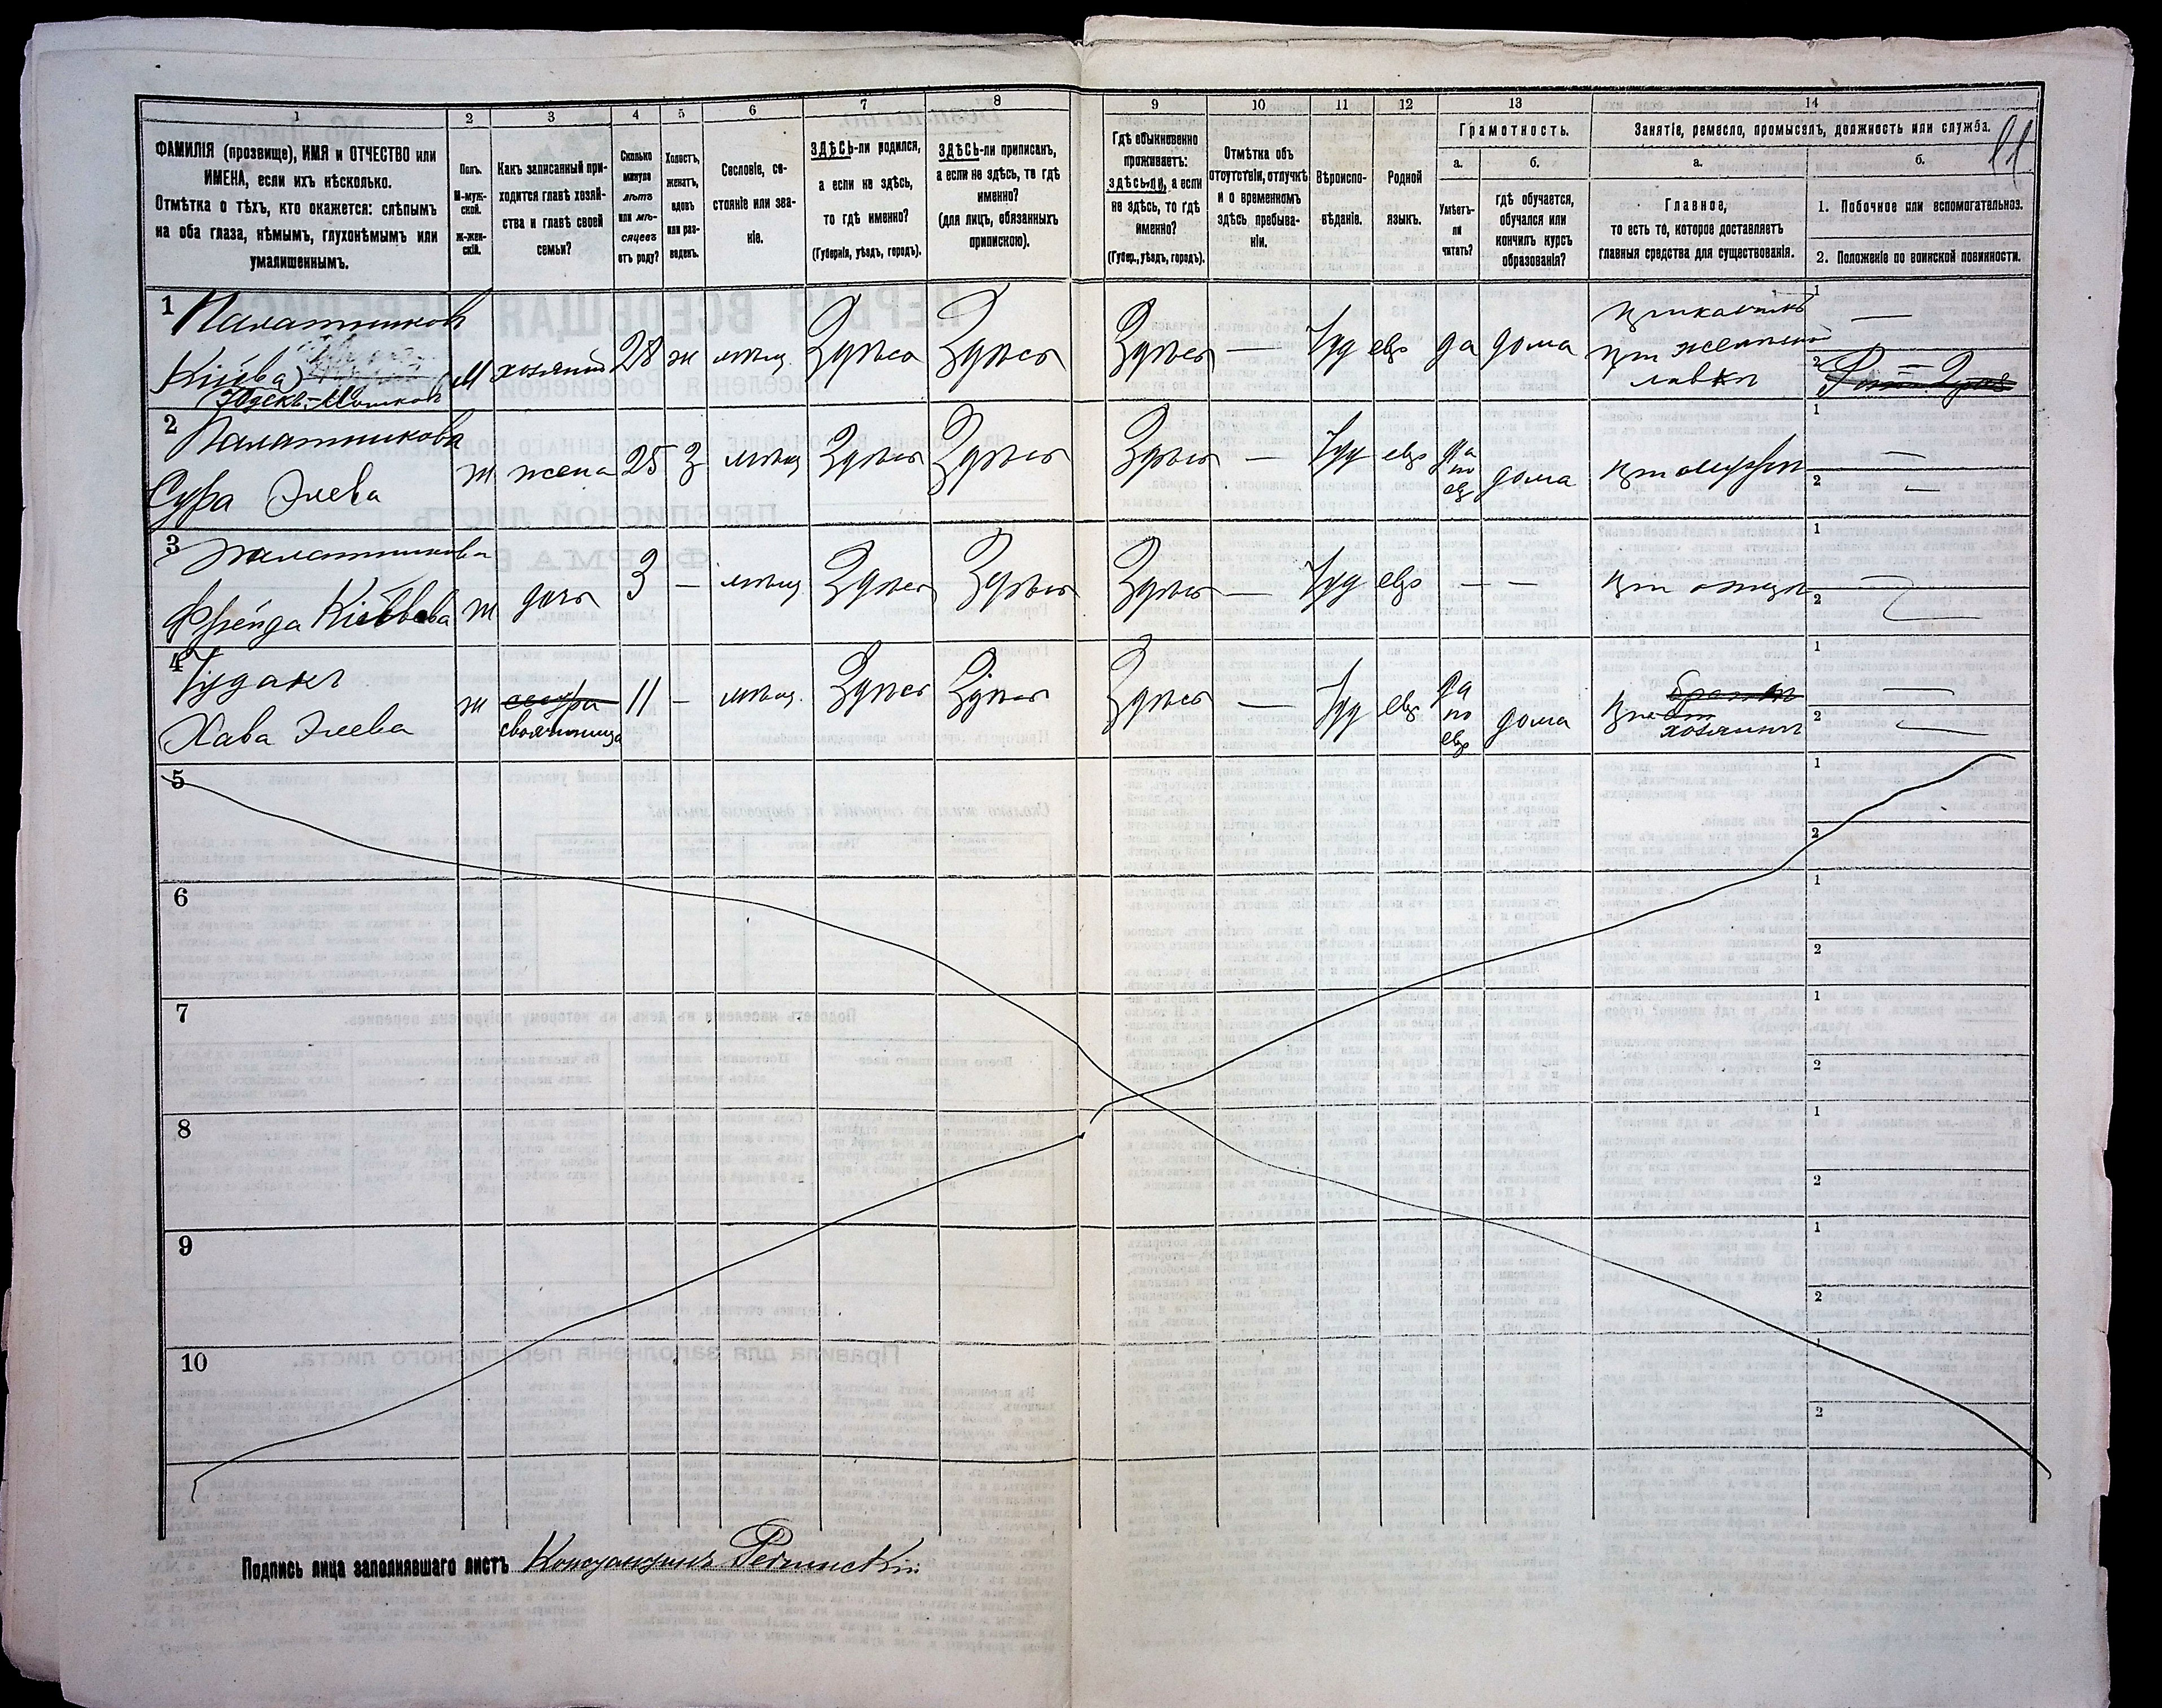 1 2 3 4 5 6 7 8 9 10 11 12 13 14
11
ФАМИЛІЯ (прозвище), ИМЯ и ОТЧЕСТВО или
ИМЕНА, если ихъ нѣсколько.
Отмѣтка о тѣхъ, кто окажется: слѣпымъ
на оба глаза, нѣмымъ, глухонѣмымъ или
умалишеннымъ.
Полъ.
М-муж-
ской.
Ж-жен-
скій.
Какъ записанный при-
ходится главѣ хозяй-
ства и главѣ своей
семьи?
Сколько
минуло
лѣтъ
или мѣ-
сяцевъ
отъ роду?
Холостъ,
женатъ,
вдовъ
или раз-
веденъ.
Сословіе, со-
стояніе или зва-
ніе.
ЗДѢСЬ-ли родился,
а если не здѣсь,
то гдѣ именно?
(Губернія, уѣздъ, городъ).
ЗДѢСЬ-ли приписанъ,
а если не здѣсь, то гдѣ
именно?
(для лицъ, обязанныхъ
припискою).
Гдѣ обыкновенно
проживаетъ:
ЗДѢСЬ-ли, а если
не здѣсь, то гдѣ
именно?
(Губер., уѣздъ, городъ).
Отмѣтка объ
отсутствіи, отлучкѣ
и о временномъ
здѣсь пребыва-
ніи.
Вѣроиспо-
вѣданіе.
Родной
языкъ.
Грамотность.
а.
Умѣетъ-
ли
читать?
б.
гдѣ обучается,
обучался или
кончилъ курсъ
образованія?
Занятіе, ремесло, промыселъ, должность или служба.
а.
Главное,
то есть то, которое доставляетъ
главныя средства для существованія.
б.
1. Побочное или вспомогательное.
2. Положеніе по воинской повинности.
1 Палатников
Кіива
Юдекъ-Мошков
М хозяинъ 28 ж мѣщ. Здѣсь Здѣсь Здѣсь — Іуд евр да дома
прикащикъ
при желѣзной
лавкѣ
1 —
2 —
2 Палатникова
Сура Элева
ж жена 25 З мѣщ Здѣсь Здѣсь Здѣсь — Іуд евр да по евр дома при мужѣ
1 —
2 —
3 Палатникова
Фрейда Кіевова
ж дочь 3 — мѣщ. Здѣсь Здѣсь Здѣсь — Іуд евр — — при отцѣ
1 —
2 —
4 Іудакъ
Хава Элева
ж сестра
свояченица
11 — мѣщ. Здѣсь Здѣсь Здѣсь — Іуд евр да по евр дома
при
хозяинѣ
1 —
2 —
5 1
2
6 1
2
7 1
2
8 1
2
9 1
2
10 1
2
Подпись лица заполнявшаго листъ Константинъ Ретинскій